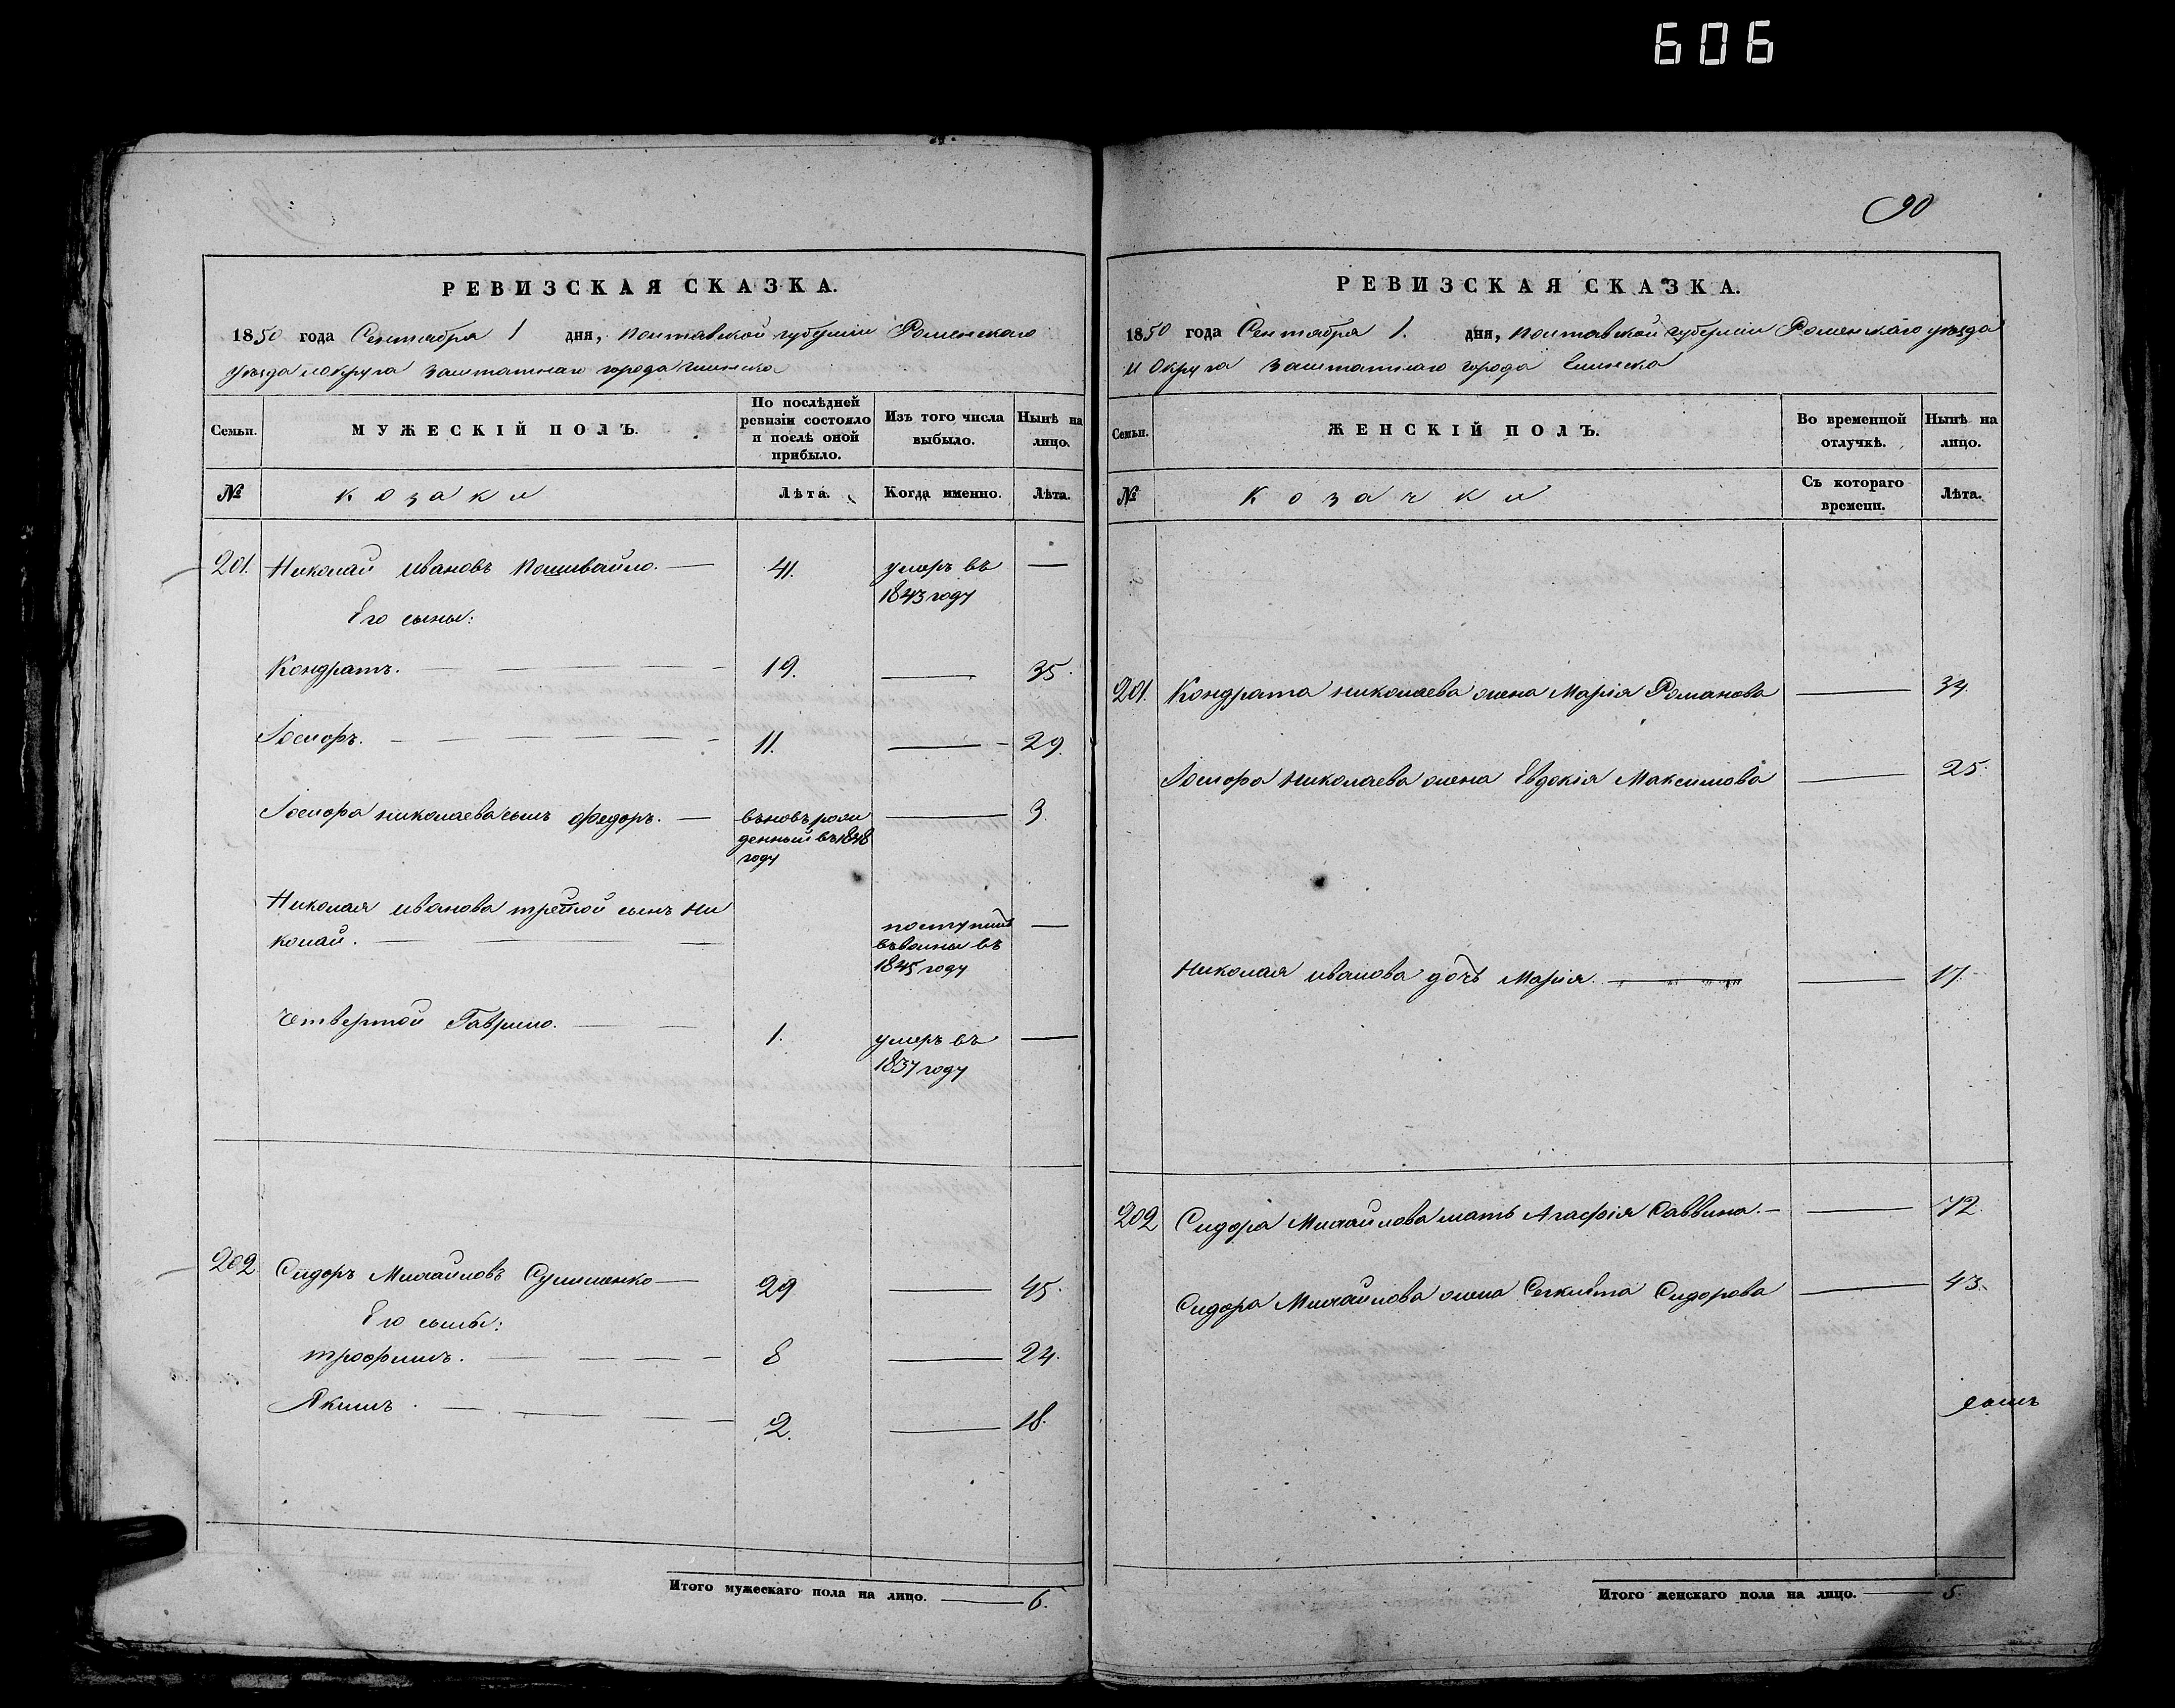 606
90
РЕВИЗСКАЯ СКАЗКА.
1850 года Сентября 1 дня, полтавской губернии Роменскаго
уезда и округа заштатнаго города глинска
Семьи.
МУЖЕСКІЙ ПОЛЪ.
По послѣдней
ревизіи состояло
и послѣ оной
прибыло.
Изъ того числа
выбыло.
Нынѣ на
лицо.
№
козаки
Лѣта.
Когда именно.
Лѣта.
201. Николай Ивановъ Пошивайло. — 41. умеръ въ —
1843 году
Его сыны:
Кондратъ. — 19. — 35.
Іосифъ. — 11. — 29.
Николаева сынъ федоръ. — вновь рож
денный въ 1848
году
— 3.
Николая Иванова третой сынъ Ни
колай. —
поступилъ
1845 году
—
Четвертой Гаврило. — 1. умеръ въ —
1837 году
202. Сидоръ Михайловъ Сулименко — 29 — 45.
Его сыны:
трофимъ. — 8 — 24.
Якимъ. — 2. — 18.
Итого мужескаго пола на лицо. — 6.
РЕВИЗСКАЯ СКАЗКА.
1850 года Сентября 1. дня, полтавской губерніи Роменскаго уезда
и Округа заштатнаго города Глинска
Семьи.
ЖЕНСКІЙ ПОЛЪ.
Во временной
отлучкѣ.
Нынѣ на
лицо.
№
Козачки
Съ котораго
времени.
Лѣта.
201. Кондрата николаева жена Марія Романова — 34.
Николаева жена Евдокія Максимова — 25.
Николая иванова дочь Марія. — 17.
202 Сидора Михайлова мать Агафія Саввина. — 72.
Сидора Михайлова жена Сидорова — 43.
Итого женскаго пола на лицо. — 5.